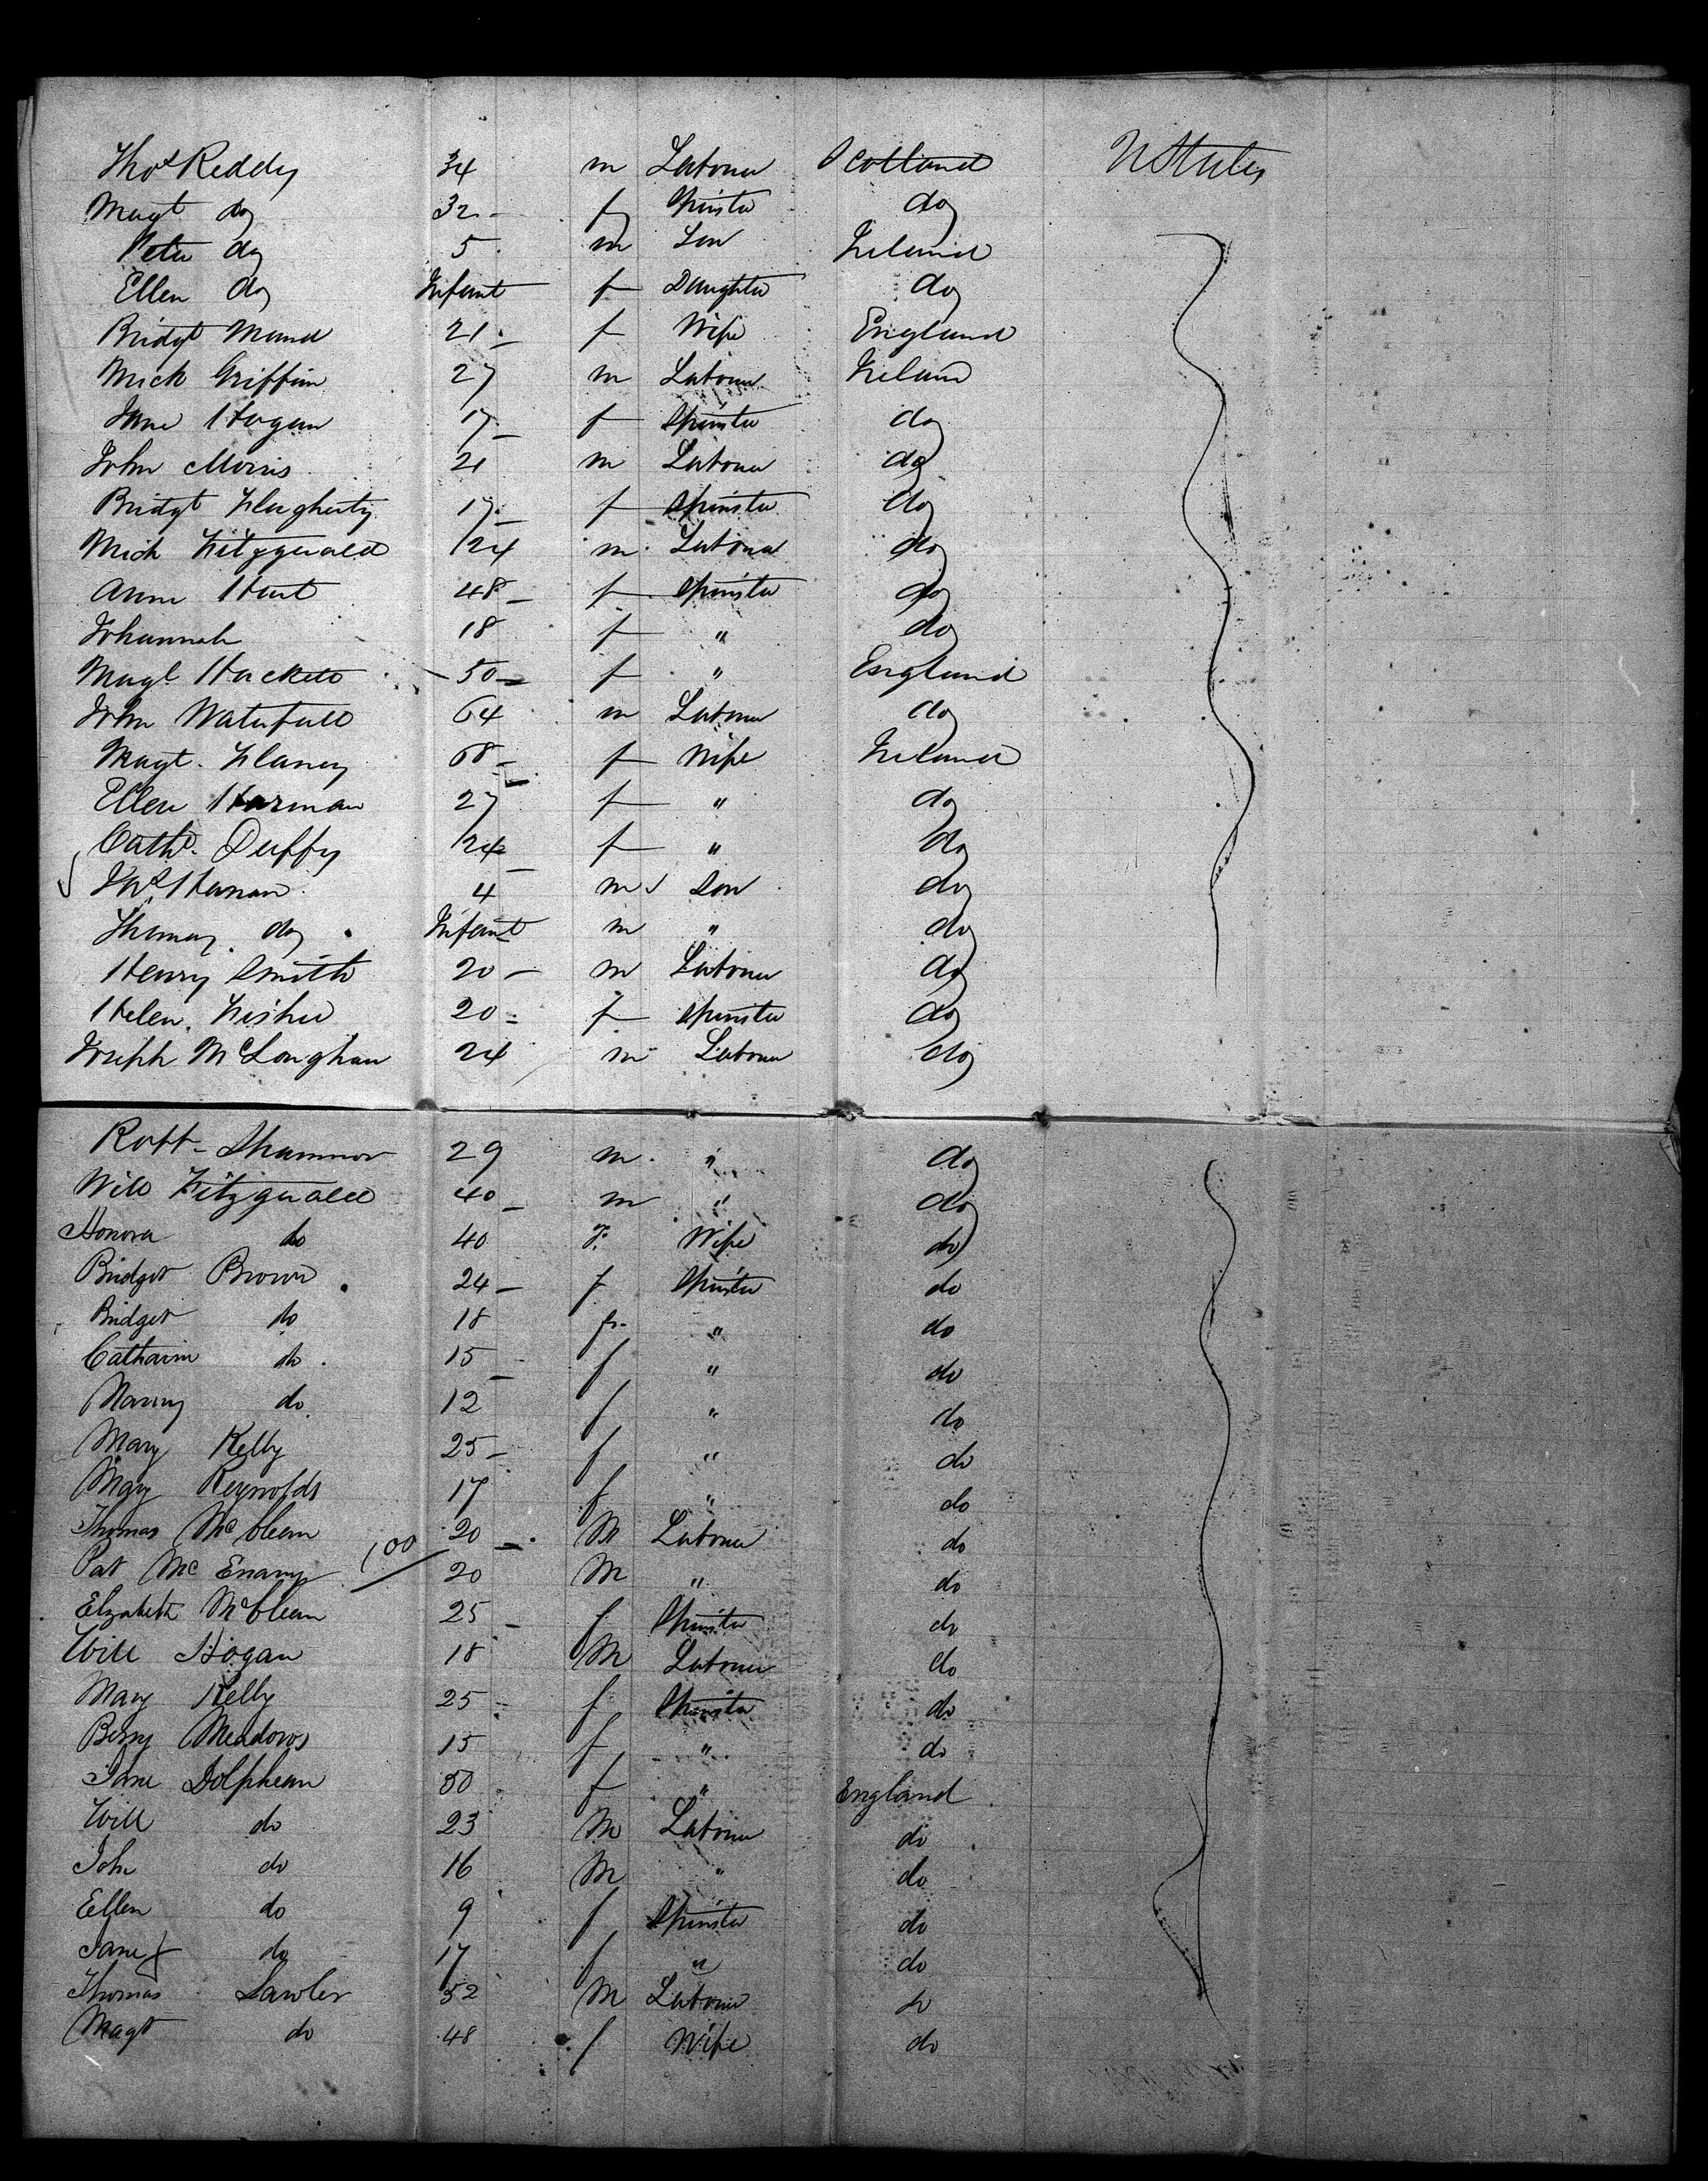 Thos Reddy 34 m Labourer Scotland U States
Magt do 32 f Spinster do
Peter do 5 m Son Ireland
Ellen do Infant f Daughter do
Bridgt 21 f Wife England
Mick Griffin 27 m Labourer Ireland
Jane Hogan 17 f Spinster do
John Morris 21 m Labourer do
Bridgt Flagherty 17 f Spinster do
Mich Fitzgerald 24 m Labourer do
Anne Hart 48 f Spinster do
Johannah 18 f " do
Magt Hackett 50 f " England
John Waterfall 64 m Labourer do
Magt. Flaney 68 f Wife Ireland
Ellen Harman 27 f " do
Cathe. Duffy 24 f " do
Harnan 4 m Son do
Thomas do Infant m " do
Henry Smith 20 m Labourer do
Helen Fisher 20 f Spinster do
Joseph McLoughan 24 m Labourer do
Robt Shannon 29 m " do
Will Fitzgerald 40 m " do
Honora do 40 F Wife do
Bridget Brown 24 f Spinster do
Bridget do 18 f " do
Catharine do 15 f " do
do 12 f " do
Mary Kelly 25 f " do
Mary Reynolds 17 f " do
Thomas McClean 20 M Labourer do
Pat Mc Enany 100 20 M " do
Elizabeth McClean 25 f Spinster do
Will Hogan 18 M Labourer do
Mary Kelly 25 f Spinster do
Bessy Meadows 15 f " do
Jane Dolphean 50 f " England
Will do 23 M Labourer do
John do 16 M " do
Ellen do 9 f Spinster do
Jane do 17 f " do
Thomas Lawler 52 M Labourer do
Magt do 48 f Wife do